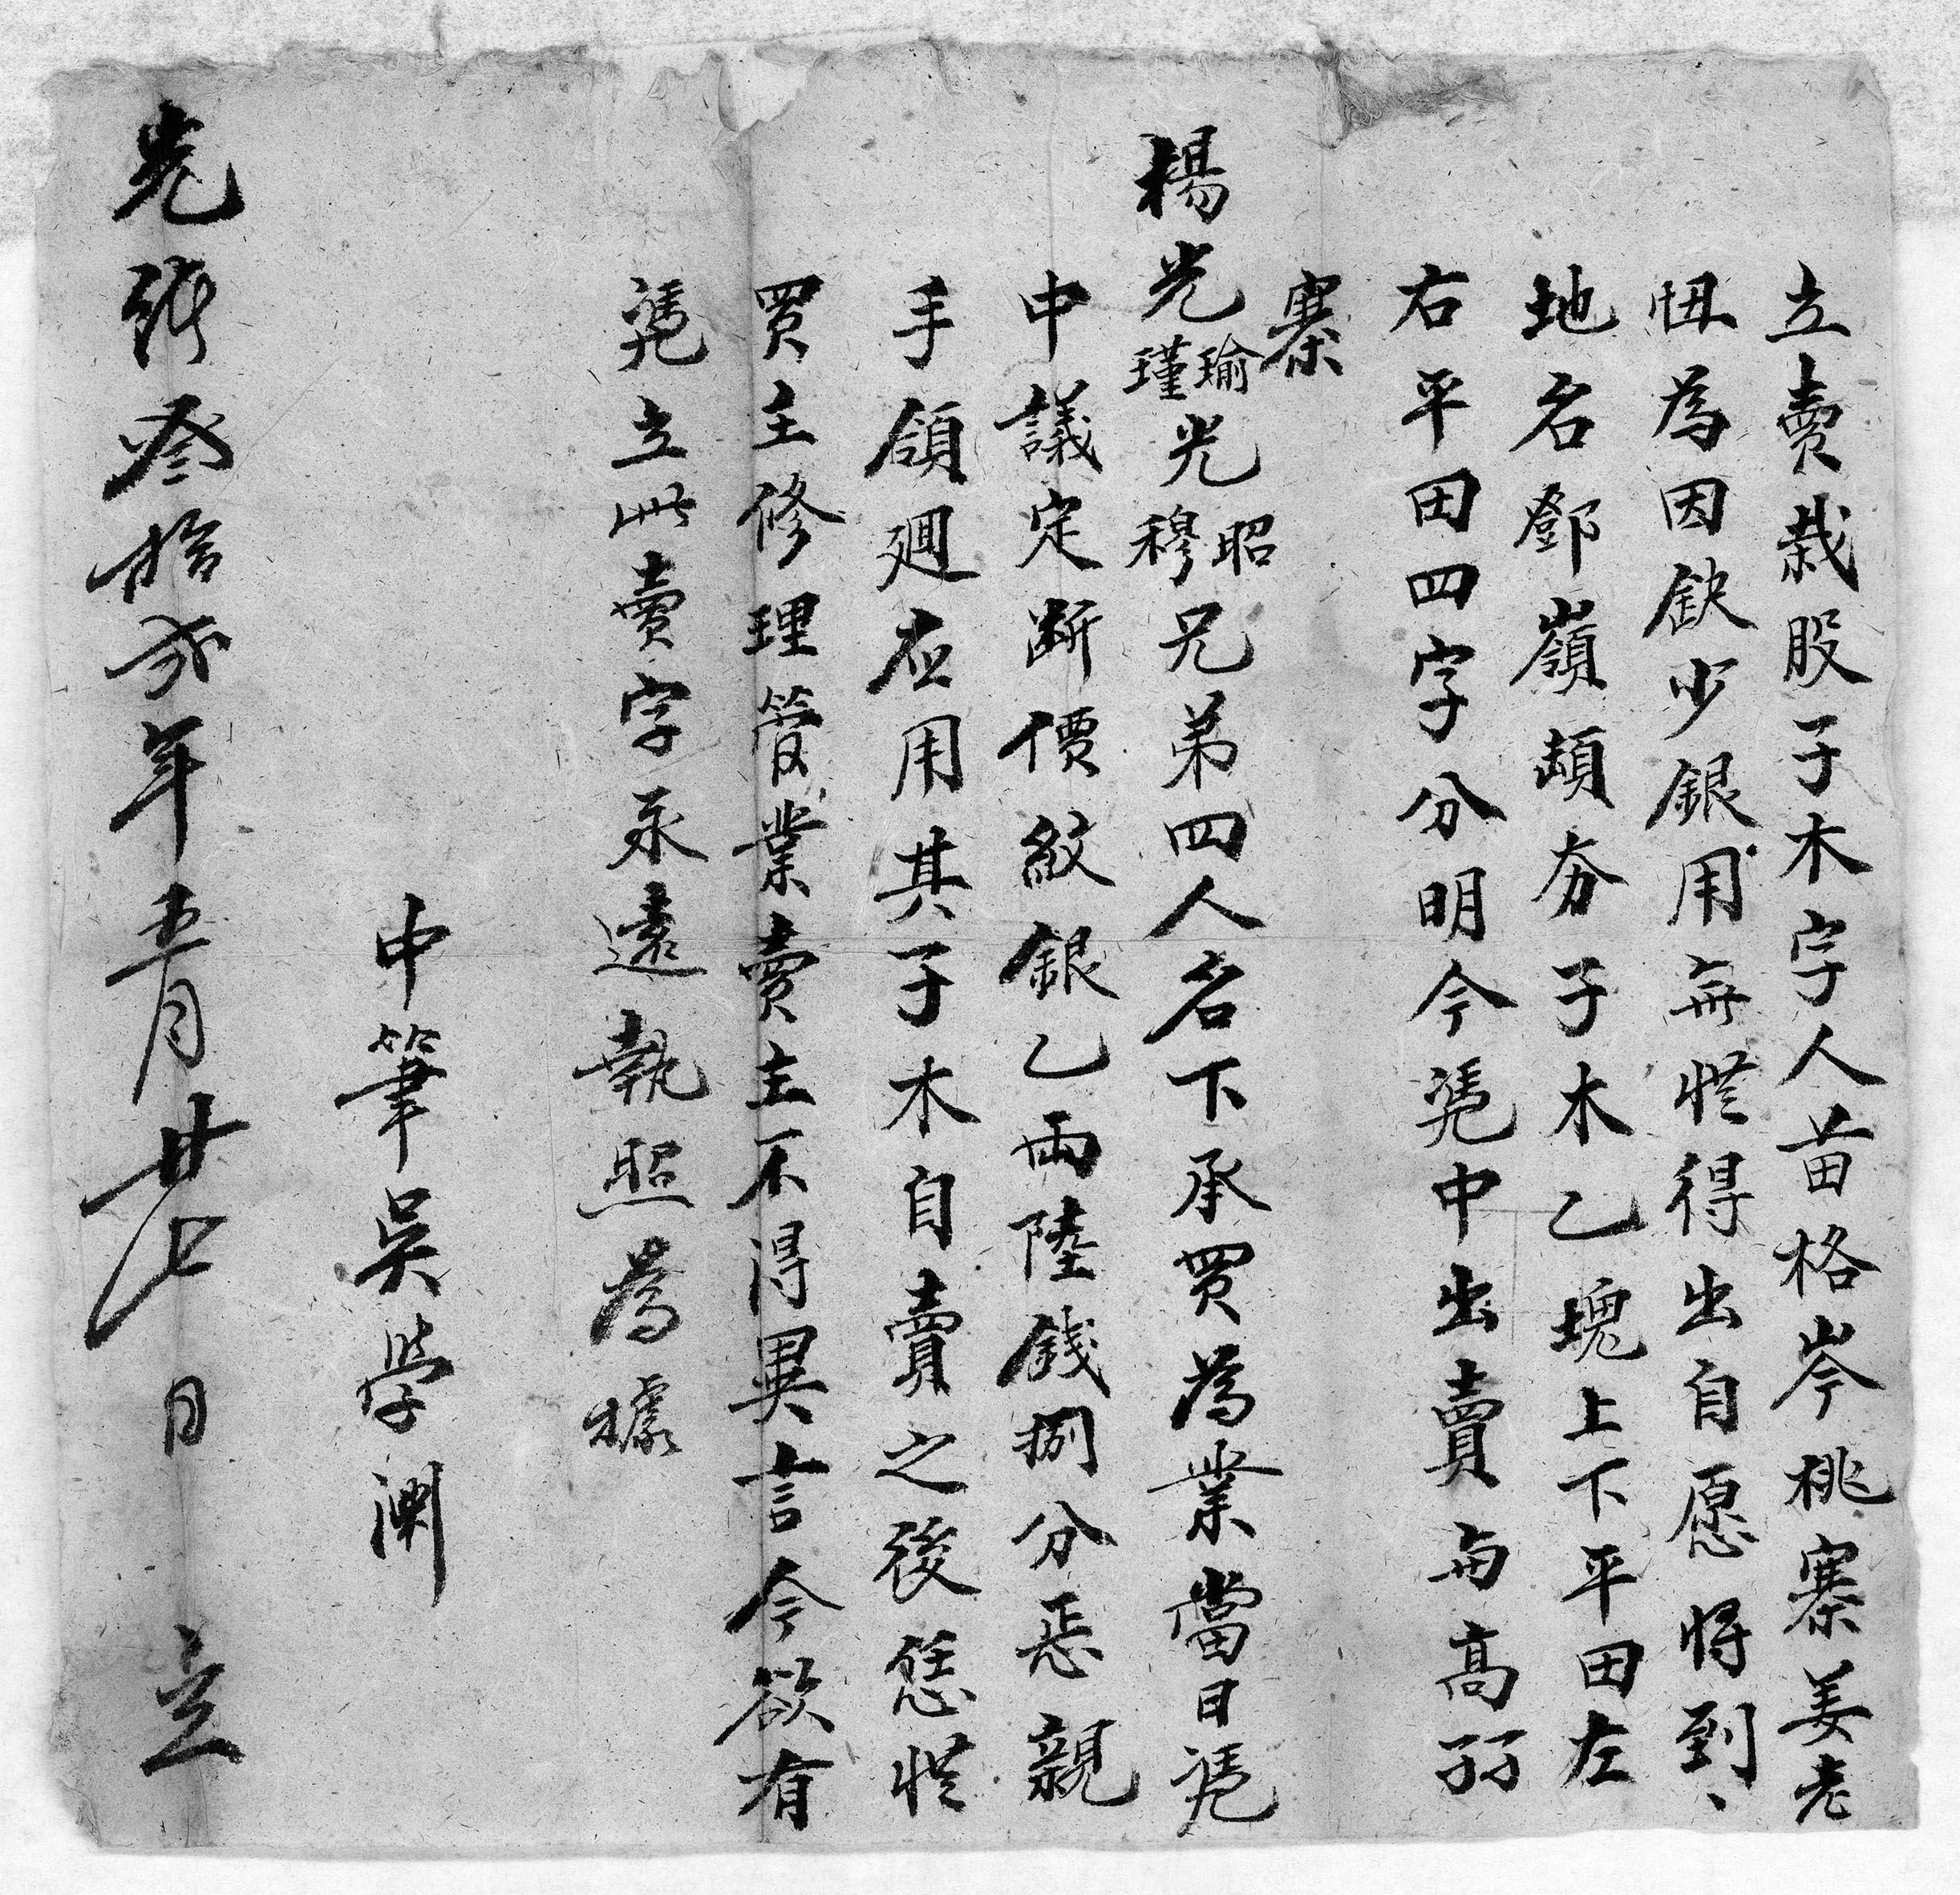 立賣栽股子木字人苗格岑桃寨姜老
忸為因缺少銀用無㤰得出自愿將到、
地名鄧嶺頭夯子木乙塊上下平田左
右平田四字分明今凴中出賣与高孖
寨
楊光瑜瑾光昭穆兄弟四人名下承買為業當日凴
中議定斷價紋銀乙兩陸錢捌分㤙親
手領廻应用其子木自賣之後恁㤰
買主修理管業賣主不淂異言今欲有
凴立此賣字永遠執照為㯫
中筆吳學渊
光緒叄拾弍年五月廿七日立